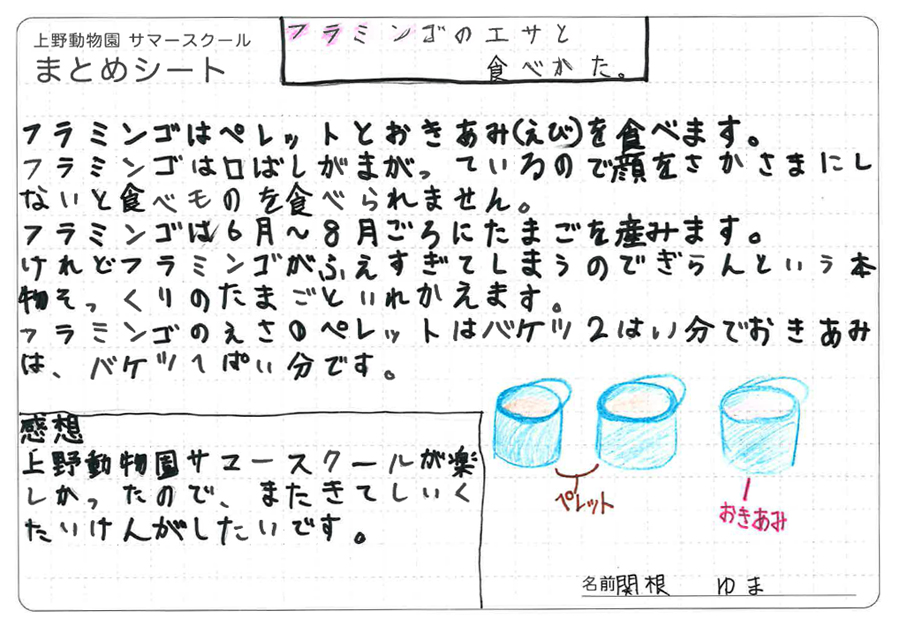 上野動物園 サマースクール
まとめシート
フラミンゴのエサと
食べかた。
フラミンゴはペレットとおきあみ(えび)を食べます。
フラミンゴは口ばしがまがっているので顔をさかさまにし
ないと食べモのを食べられません。
フラミンゴは6月〜8月ごろにたまごを産みます。
けれどフラミンゴがふえすぎてしまうのでぎらんという本
物そっくりのたまごといれかえます。
フラミンゴのえさのペレットはバケツ2はい分でおきあみ
は、バケツ1ぱい分です。
感想
上野動物園サマースクールが楽
しかったので、またきてしいく
たいけんがしたいです。
ペレット
おきあみ
名前 関根 ゆま